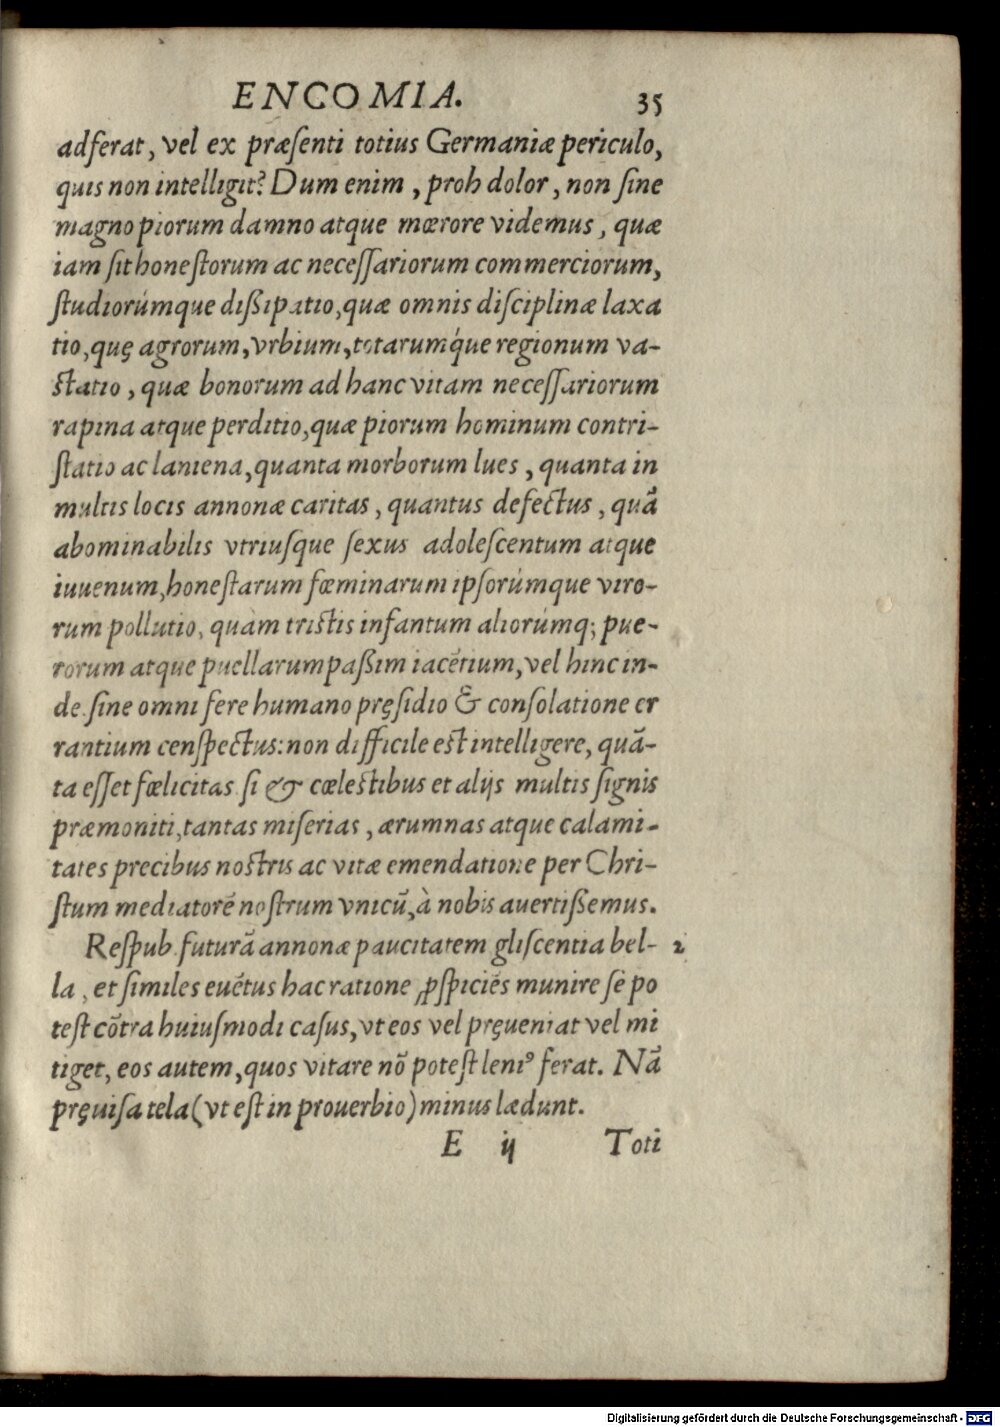 ENCOMIA. 35
adferat, vel ex præſenti totius Germaniæ periculo,
quis non intelligit? Dum enim, proh dolor, non ſine
magno piorum damno atque mœrore videmus, quæ
iam ſit honeſtorum ac neceſſariorum commerciorum,
ſtudiorúmque dißipatio, quæ omnis diſciplinæ laxa
tio, quę agrorum, vrbium, totarumq́ue regionum va-
ſtatio, quæ bonorum ad hanc vitam neceſſariorum
rapina atque perditio, quæ piorum hominum contri-
ſtatio ac laniena, quanta morborum lues, quanta in
multis locis annonæ caritas, quantus defectus, quā
abominabilis vtriuſque ſexus adoleſcentum atque
iuuenum, honeſtarum fœminarum ipſorúmque viro-
rum pollutio, quàm triſtis infantum aliorúmq; pue-
rorum atque puellarum paßim iacētium, vel hinc in-
de ſine omni fere humano pręſidio & conſolatione er
rantium cenſpectus: non difficile eſt intelligere, quā-
ta eſſet fœlicitas ſi & cœleſtibus et alijs multis ſignis
præmoniti, tantas miſerias, ærumnas atque calami-
tates precibus noſtris ac vitæ emendatione per Chri-
ſtum mediatorē noſtrum vnicū, à nobis auertißemus.
Reſpub. futurā annonæ paucitatem gliſcentia bel- 2
la, et ſimiles euētus hac ratione ꝓſpiciēs munire ſe po
teſt cōtra huiuſmodi caſus, vt eos vel pręueniat vel mi
tiget, eos autem, quos vitare nō poteſt leniꝰ ferat. Nā
pręuiſa tela (vt eſt in prouerbio) minus lædunt.
E ij Toti
Digitalisierung gefördert durch die Deutsche Forschungsgemeinschaft - DFG